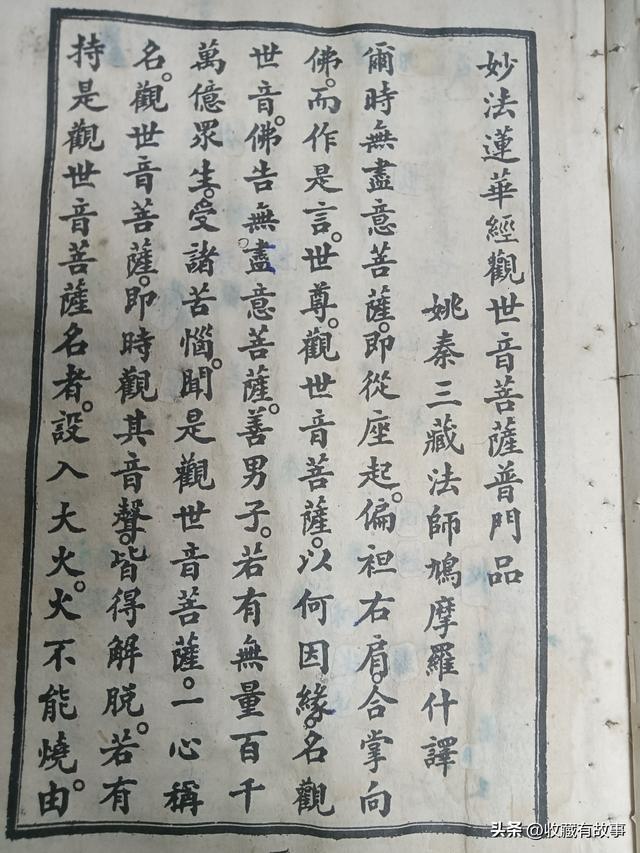 妙法蓮華經觀世音菩薩普門品
姚秦三藏法師鳩摩羅什譯
爾時無盡意菩薩。即從座起。偏袒右肩。合掌向
佛。而作是言。世尊。觀世音菩薩。以何因緣。名觀
世音。佛告無盡意菩薩。善男子。若有無量百千
萬億眾生。受諸苦惱。聞是觀世音菩薩。一心稱
名。觀世音菩薩。即時觀其音聲。皆得解脫。若有
持是觀世音菩薩名者。設入大火。火不能燒。由
头条 @收藏有故事